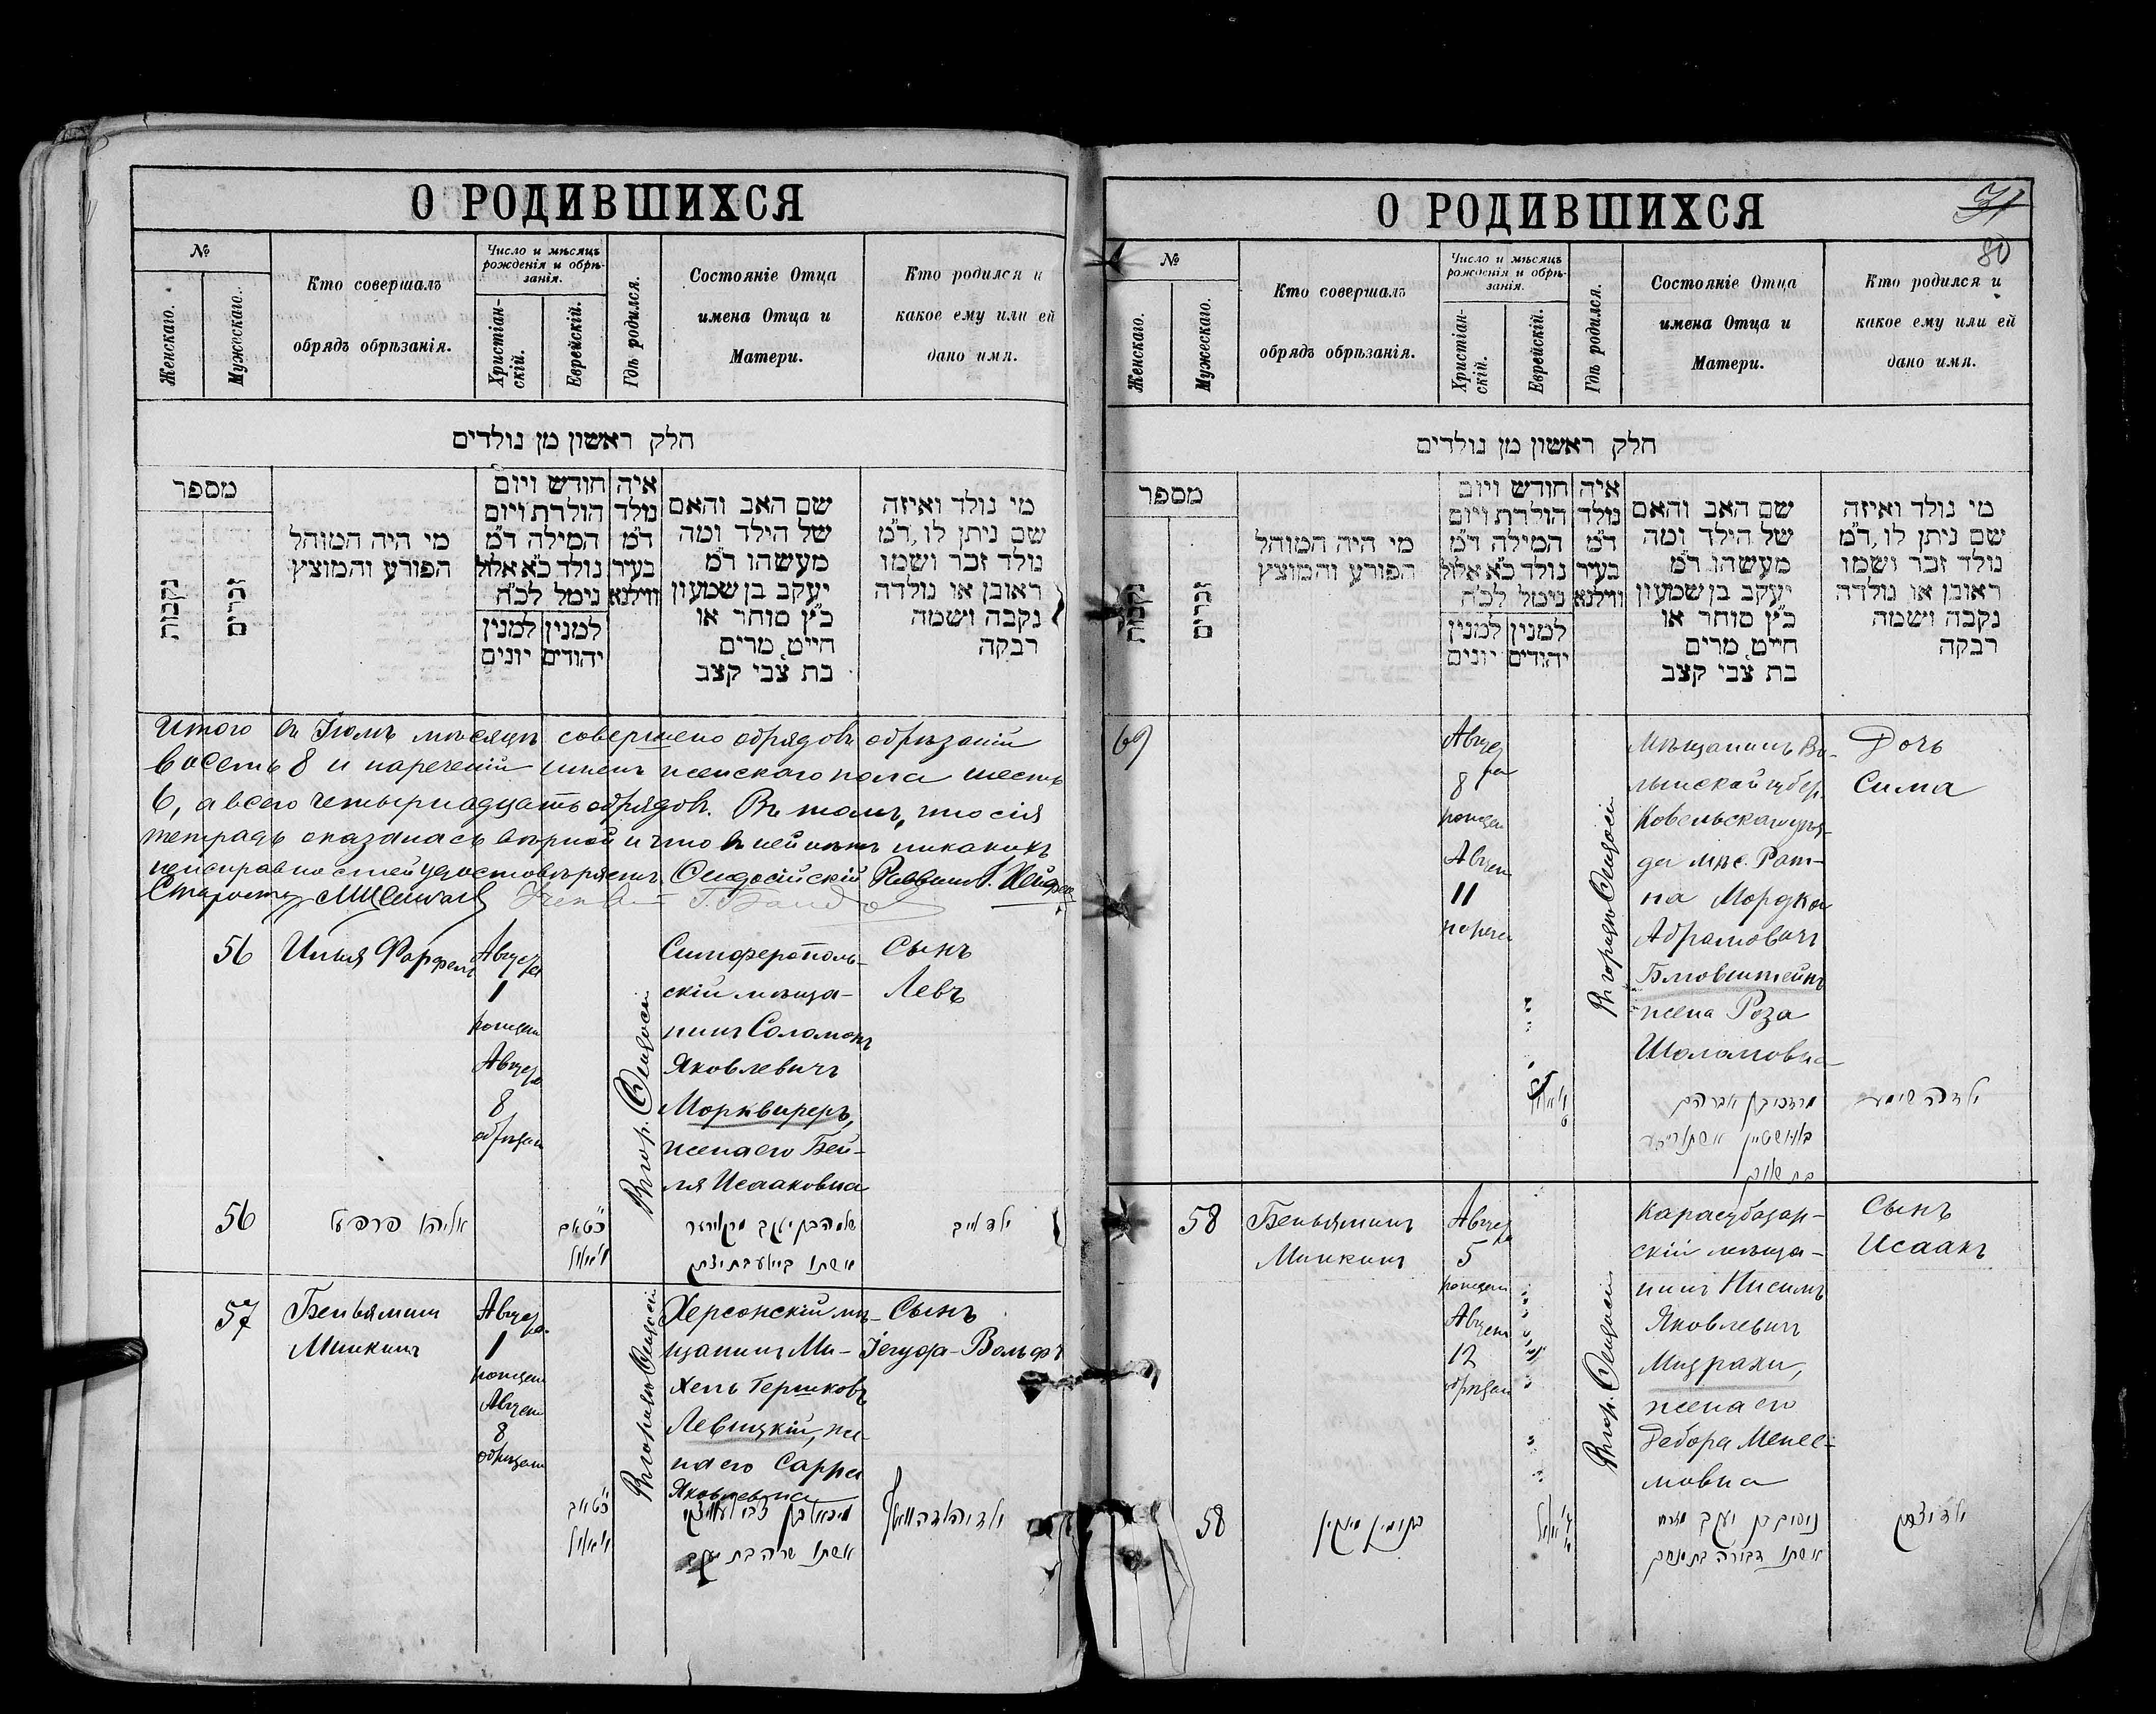 О РОДИВШИХСЯ
№
Женскаго.
Мужескаго.
Кто совершалъ
обрядъ обрѣзанія.
Число и мѣсяцъ
рожденія и обрѣ-
занія.
Христіан-
скій.
Еврейскій.
Гдѣ родился.
Состояніе Отца
имена Отца и
Матери.
Кто родился и
какое ему или ей
дано имя.
חלק ראשון מן נולדים
מספר
נקבות
זכרים
מי היה המוהל
הפורע והמוצץ
חודש ויום
הולדת ויום
המילה ד״מ
נולד כ״א אלול
נימל לכ״ח
למנין
יהודים
למנין
יונים
איה
נולד
ד״מ
בעיר
ווילנא
שם האב והאם
של הילד ומה
מעשהו ד״מ
יעקב בן שמעון
כ״ץ סוחר או
חייט, מרים
בת צבי קצב
מי נולד ואיזה
שם ניתן לו, ד״מ
נולד זכר ושמו
ראובן או נולדה
נקבה ושמה
רבקה
Итого въ Іюлѣ мѣсяцѣ совершено обрядовъ обрѣзаній
восемь 8 и нареченій именъ женскаго пола шесть
6, а всего четырнадцать обрядовъ. Въ томъ, что сія
тетрадь оказалась вѣрной и что въ ней нѣтъ никакихъ
неисправностей удостовѣряемъ. Ѳеодосійскій Раввинъ
Староста
56
Илья Фарфель
Августа
1
рожденъ
Августа
8
обрѣзанъ
Въ гор. Ѳеодосіи
Симферополь-
скій мѣща-
нинъ Соломонъ
Яковлевичъ
Морквиреръ,
жена его Бей-
ля Исааковна
Сынъ
Левъ
56
אליהו פרפעל
כ״ט אב
ו׳ אלול
שלמה בן יעקב
אשתו ביילע בת יצחק
ילד לייב
57
Беньяминъ
Минкинъ
Августа
1
рожденъ
Августа
8
обрѣзанъ
Въ городѣ Ѳеодосіи
Херсонскій мѣ-
щанинъ Ми-
хель Гершковъ
Левицкій, же-
на его Сарра
Яковлевна
Сынъ
Іегуда-Вольфъ
כ״ט אב
ו׳ אלול
מיכאל בן צבי לעוויצקי
אשתו שרה בת יעקב
ילד יהודה וואלף
О РОДИВШИХСЯ
71
80
№
Женскаго.
Мужескаго.
Кто совершалъ
обрядъ обрѣзанія.
Число и мѣсяцъ
рожденія и обрѣ-
занія.
Христіан-
скій.
Еврейскій.
Гдѣ родился.
Состояніе Отца
имена Отца и
Матери.
Кто родился и
какое ему или ей
дано имя.
חלק ראשון מן נולדים
מספר
נקבות
זכרים
מי היה המוהל
הפורע והמוצץ
חודש ויום
הולדת ויום
המילה ד״מ
נולד כ״א אלול
נימל לכ״ח
למנין
יהודים
למנין
יונים
איה
נולד
ד״מ
בעיר
ווילנא
שם האב והאם
של הילד ומה
מעשהו ד״מ
יעקב בן שמעון
כ״ץ סוחר או
חייט, מרים
בת צבי קצב
מי נולד ואיזה
שם ניתן לו, ד״מ
נולד זכר ושמו
ראובן או נולדה
נקבה ושמה
רבקה
69
Августа
8
рожден
Август
11
нареч
Въ городѣ Ѳеодосіи
Мѣщанинъ Во-
лынской губер.
Ковельскаго уѣз-
да мѣс. Рат-
на Мордко
Абрамовичъ
Бловштейнъ
жена Роза
Шоломовна
Дочь
Сима
מרדכי בן אברהם
בלאושטיין אשתו רייזע
ילדה סימע
58
Беньяминъ
Минкинъ
Августа
5
рожденъ
Августа
12
обрѣзанъ
Въ гор. Ѳеодосіи
Карасубазар-
скій мѣща-
нинъ Нисимъ
Яковлевич
Мизрахи,
жена его
Дебора Менес-
мовна
Сынъ
Исаакъ
58
בנימין מינקין
נסים בן יעקב מזרחי
אשתו דבורה בת מנחם
ילד יצחק